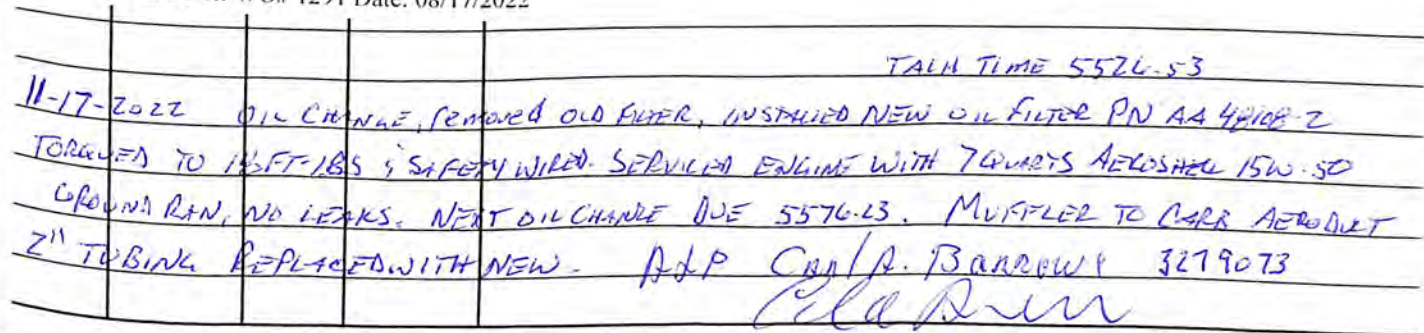 4291 Date: 08/17/2022
TACH TIME 5526.53
11-17-2022 OIL CHANGE, removed OLD FILTER, INSTALLED NEW OIL FILTER PN AA 48108-2
TORQUED TO FT-LBS & SAFETY WIRED. SERVICED ENGINE WITH 7 QUARTS AEROSHELL 15W-50
GROUND RAN, NO LEAKS. NEXT OIL CHANGE DUE 5576.23. MUFFLER TO CARB AERODUCT
2" TUBING REPLACED WITH NEW. A&P Carl A. Barrows 3279073